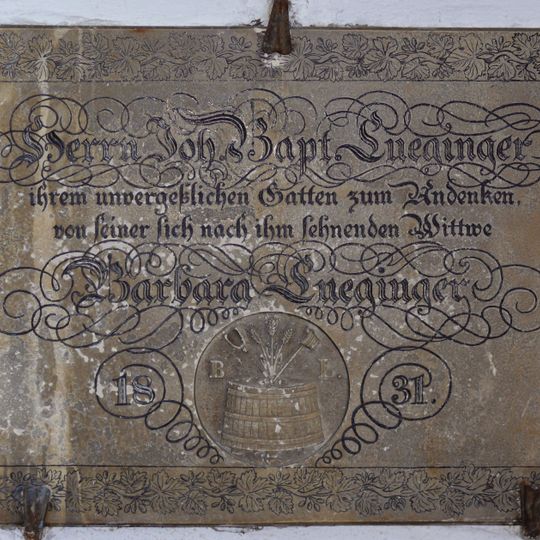 Herrn Joh. Bapt. Lueginger
ihrem unvergeßlichen Gatten zum Andenken,
von seiner sich nach ihm sehnenden Wittwe
Barbara Lueginger
B. L.
18 31.